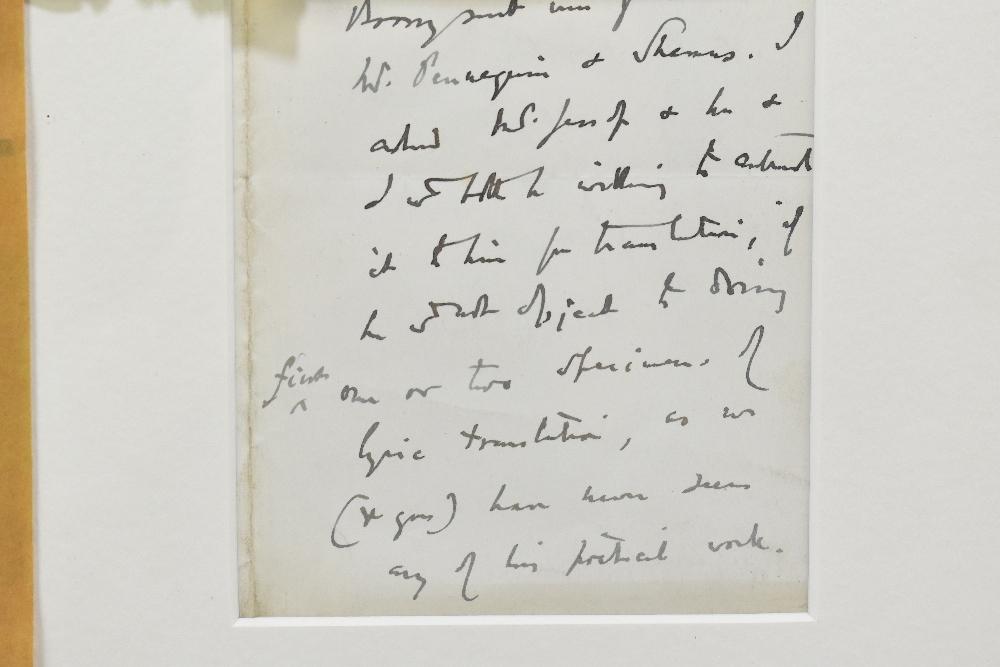 W. Pennequin & Thomas. I
asked Mr. Jessop & he &
I wd both be willing to entrust
it to him for translation, if
he wd not object to doing
first one or two specimens of
lyric translation, as we
(& you) have never seen
any of his poetical work.